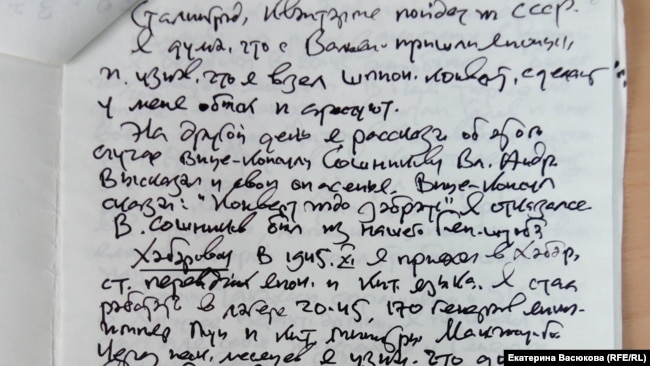 Сталинград, Квантунс пойдет на СССР.
Я дума, что с пришли японцы,
и узнав, что я взял шпион. конверт, сделают
у меня обыск и арестуют.
На другой день я рассказ об этом
случае Вице-консулу Сошникову Вл. Андр
Высказал и свои опасенья. Вице-консул
сказал: "Конверт надо забрать" Я отказался
В. Сошников был из нашего Ген-штаба
Хабаровск В 1945. XI я приехал в Хабар,
ст. переводчик япон. и кит. языка. Я стал
работать в лагере 20-45, 170 генералов япон-
ператор Пуи и кит. министры Манчжу-Го
Через нес. месяцев я узнал, что
Екатерина Васюкова (RFE/RL)